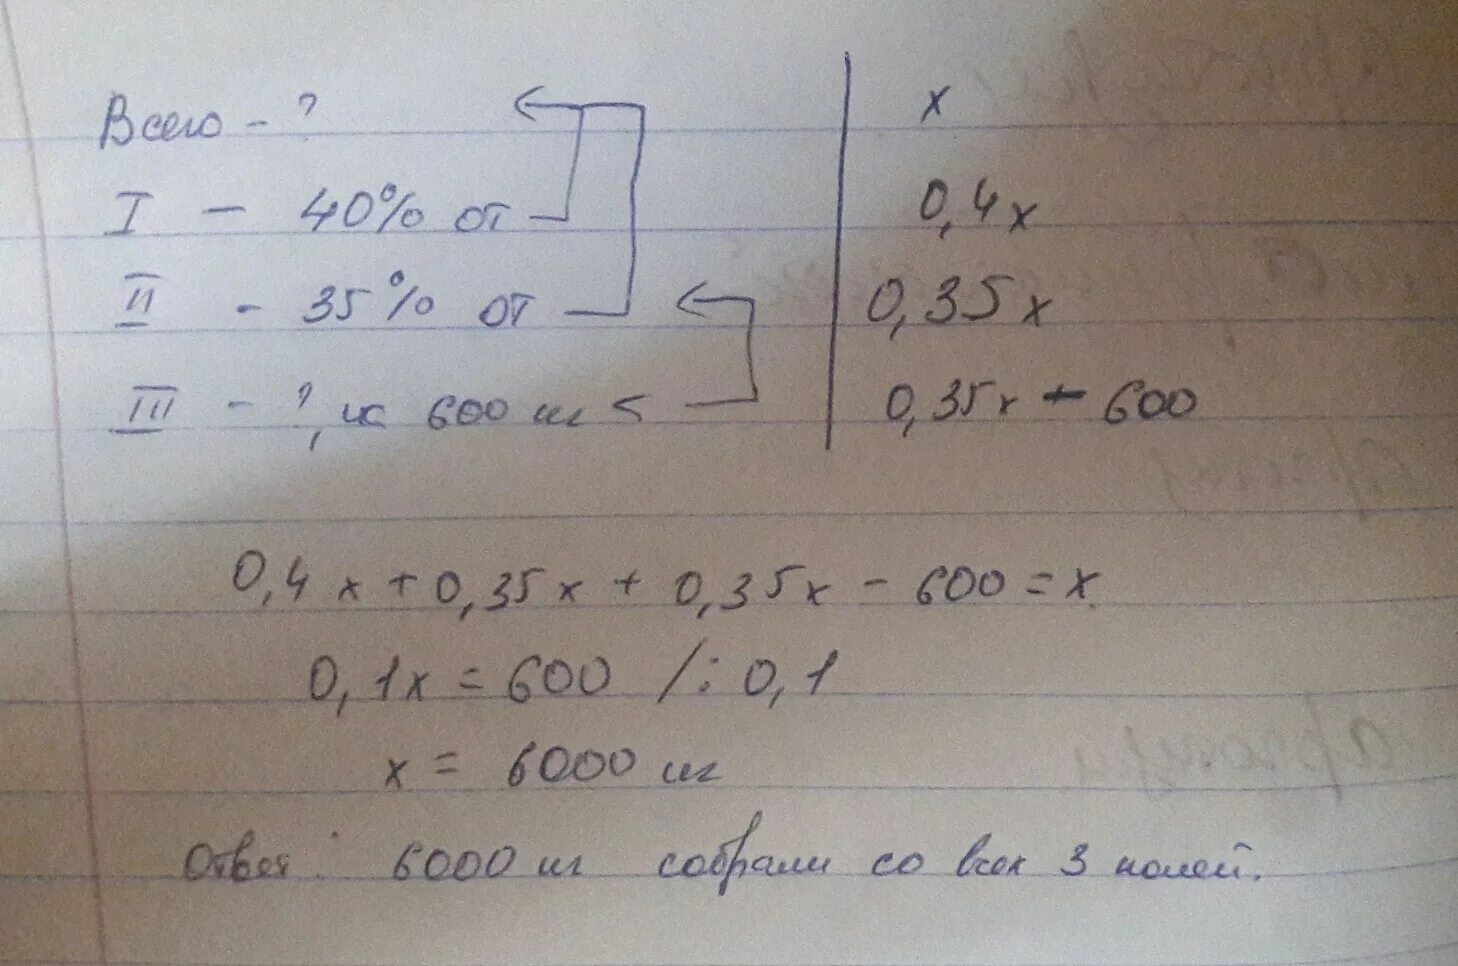 Всего - ? x
I - 40% от 0,4x
II - 35% от 0,35x
III - ?, на 600 кг < 0,35x - 600
0,4x + 0,35x + 0,35x - 600 = x
0,1x = 600 /: 0,1
x = 6000 кг
Ответ: 6000 кг собрали со всех 3 полей.